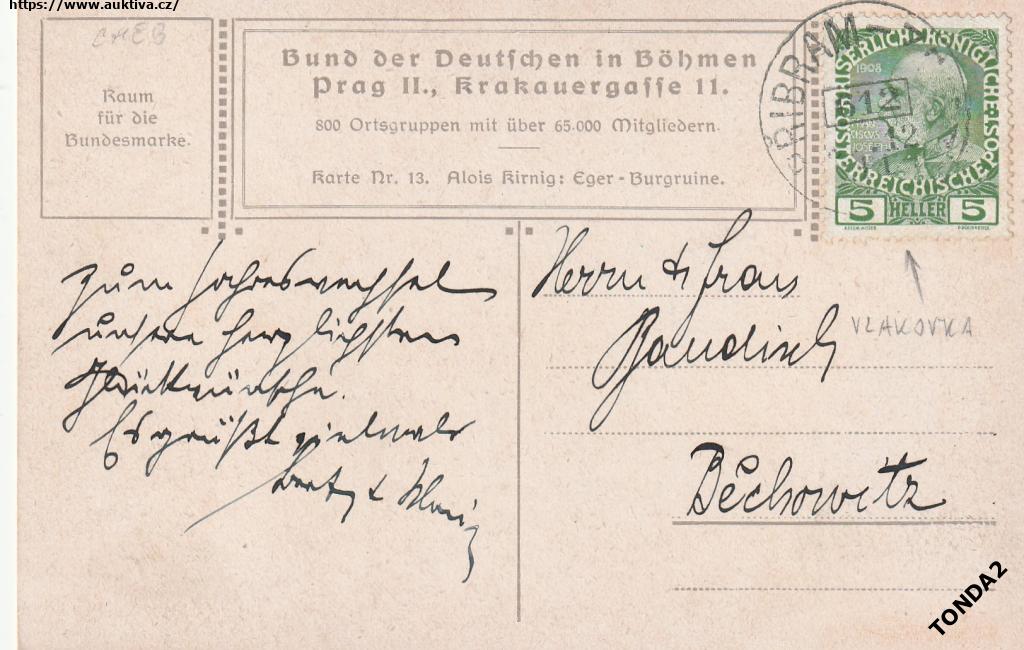 https://www.auktiva.cz/
CHEB
Raum
für die
Bundesmarke.
Bund der Deutschen in Böhmen
Prag II., Krakauergasse 11.
800 Ortsgruppen mit über 65.000 Mitgliedern.
Karte Nr. 13. Alois Kirnig: Eger-Burgruine.
PŘIBRAM
12
12
KAISERLICHE KÖNIGLICHE
ÖSTERREICHISCHE POST
1908
5 HELLER 5
VLAKOVKA
Zum Jahreswechsel
unsere herzlichsten
Glückwünsche.
Es grüßt vielmals
Herrn & Frau
Baudisch
Běchowitz
TONDA2